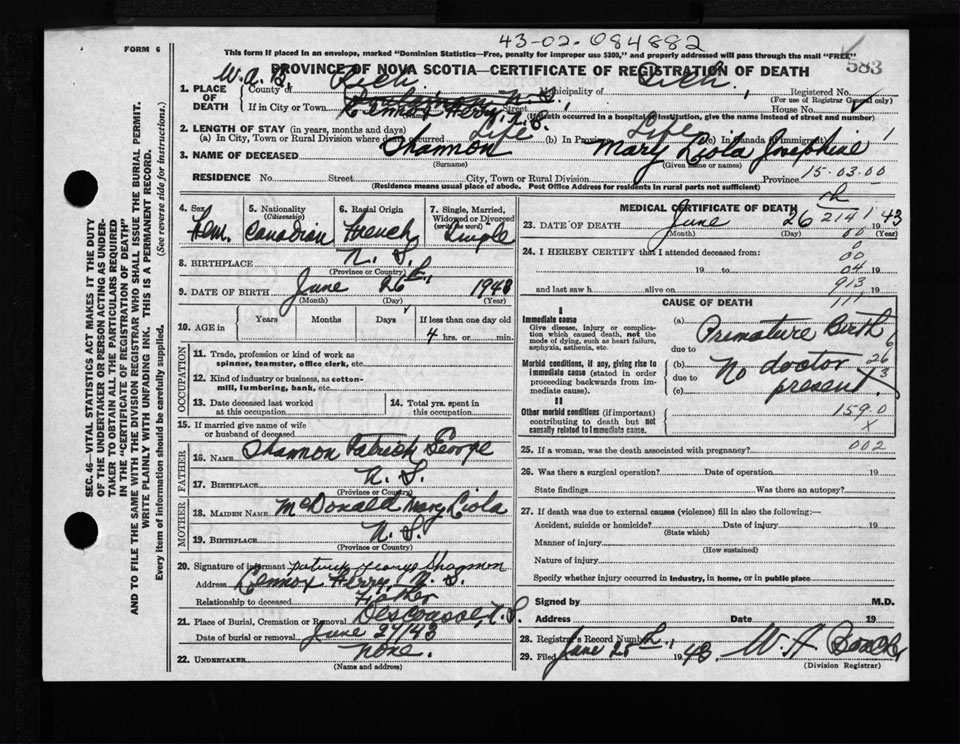 43-02-084882
FORM 6
This form if placed in an envelope, marked "Dominion Statistics—Free, penalty for improper use $300," and properly addressed will pass through the mail "FREE"
583
PROVINCE OF NOVA SCOTIA—CERTIFICATE OF REGISTRATION OF DEATH
1. PLACE OF DEATH
County of Rich. Municipality of Rich. Registered No.
(For use of Registrar General only)
If in City or Town Lennox Ferry, N.S. Street House No.
(If death occurred in a hospital or institution, give the name instead of street and number)
2. LENGTH OF STAY (in years, months and days)
(a) In City, Town or Rural Division where death occurred Life (b) In Province Life (c) In Canada (if immigrant)
3. NAME OF DECEASED Shannon Mary Liola Josephine
(Surname) (Given name or names)
RESIDENCE No. Street City, Town or Rural Division Province 15-03-00
(Residence means usual place of abode. Post Office Address for residents in rural parts not sufficient)
4. Sex Fem.
5. Nationality (Citizenship) Canadian
6. Racial Origin French
7. Single, Married, Widowed or Divorced (write the word) Single
8. BIRTHPLACE N. S.
(Province or Country)
9. DATE OF BIRTH June 26th 1943
(Month) (Day) (Year)
10. AGE in Years Months Days If less than one day old
4 hrs. or min.
OCCUPATION
11. Trade, profession or kind of work as spinner, teamster, office clerk, etc.
12. Kind of industry or business, as cotton-mill, lumbering, bank, etc.
13. Date deceased last worked at this occupation
14. Total yrs. spent in this occupation
15. If married give name of wife or husband of deceased
FATHER
16. NAME Shannon Patrick George
17. BIRTHPLACE N. S.
(Province or Country)
MOTHER
18. MAIDEN NAME McDonald Mary Liola
19. BIRTHPLACE N. S.
(Province or Country)
20. Signature of informant Patrick George Shannon
Address Lennox Ferry, N. S.
Relationship to deceased Father
21. Place of Burial, Cremation or Removal Descousse, N.S.
Date of burial or removal June 27/43
22. UNDERTAKER None.
(Name and address)
MEDICAL CERTIFICATE OF DEATH
23. DATE OF DEATH June 26th 2141 1943
(Month) (Day) 00 (Year)
24. I HEREBY CERTIFY that I attended deceased from:
0
00
19 to 04 19
and last saw h alive on 913 19
111
CAUSE OF DEATH
I
Immediate cause
Give disease, injury or complication which caused death, not the mode of dying, such as heart failure, asphyxia, asthenia, etc.
(a) Premature Birth
due to 6
Morbid conditions, if any, giving rise to immediate cause (stated in order proceeding backwards from immediate cause).
(b) No doctor 26
due to present 3
(c)
II
Other morbid conditions (if important) contributing to death but not causally related to immediate cause.
159.0
x
25. If a woman, was the death associated with pregnancy? 002
26. Was there a surgical operation? Date of operation 19
State findings Was there an autopsy?
27. If death was due to external causes (violence) fill in also the following:—
Accident, suicide or homicide? Date of injury 19
(State which)
Manner of injury
(How sustained)
Nature of injury
Specify whether injury occurred in industry, in home, or in public place
Signed by M.D.
Address Date 19
28. Registrar's Record Number
29. Filed June 28th 1943 W. A.
(Division Registrar)
SEC. 46—VITAL STATISTICS ACT MAKES IT THE DUTY
OF THE UNDERTAKER OR PERSON ACTING AS UNDER-
TAKER TO OBTAIN ALL THE PARTICULARS REQUIRED
IN THE "CERTIFICATE OF REGISTRATION OF DEATH"
AND TO FILE THE SAME WITH THE DIVISION REGISTRAR WHO SHALL ISSUE THE BURIAL PERMIT.
WRITE PLAINLY WITH UNFADING INK. THIS IS A PERMANENT RECORD.
Every item of information should be carefully supplied. (See reverse side for instructions.)